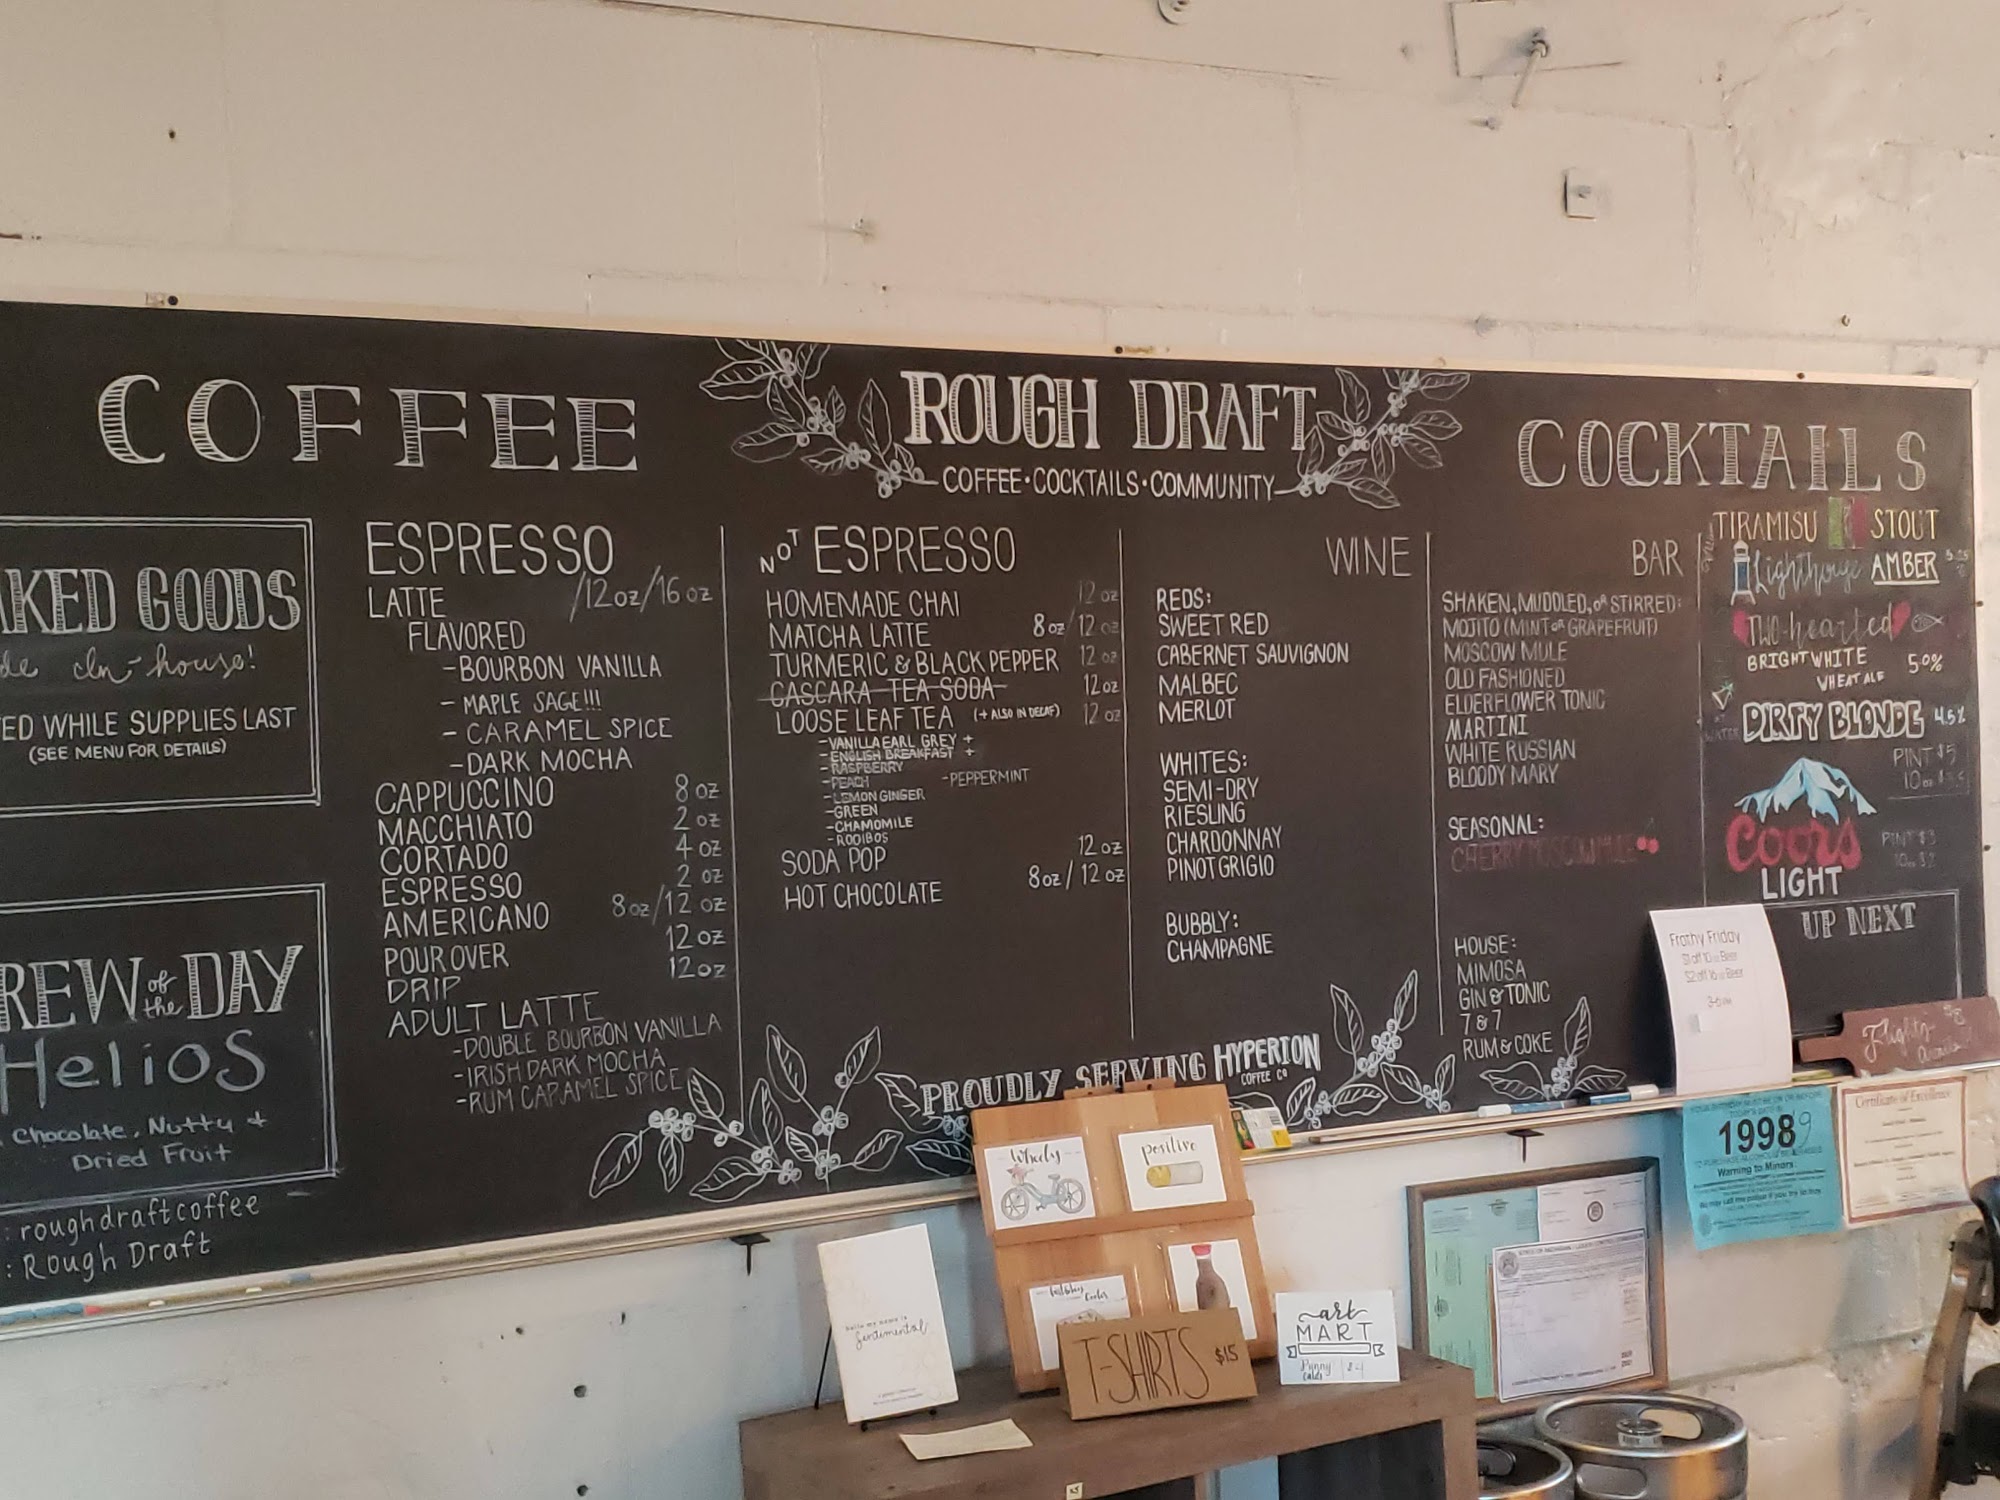 COFFEE
ROUGH DRAFT
COFFEE·COCKTAILS·COMMUNITY
COCKTAILS
KED GOODS
de In-house!
ED WHILE SUPPLIES LAST
(SEE MENU FOR DETAILS)
REW of the DAY
Helios
Chocolate, Nutty +
Dried Fruit
: roughdraftcoffee
: Rough Draft
ESPRESSO
LATTE /12oz/16oz
FLAVORED
-BOURBON VANILLA
- MAPLE SAGE!!!
- CARAMEL SPICE
-DARK MOCHA
CAPPUCCINO 8 oz
MACCHIATO 2 oz
CORTADO 4 oz
ESPRESSO 2 oz
AMERICANO 8oz/12 oz
POUR OVER 12 oz
DRIP 12oz
ADULT LATTE
-DOUBLE BOURBON VANILLA
-IRISH DARK MOCHA
-RUM CARAMEL SPICE
NOT ESPRESSO
HOMEMADE CHAI 12 oz
MATCHA LATTE 8oz/12 oz
TURMERIC & BLACK PEPPER 12 oz
CASCARA TEA SODA 12 oz
LOOSE LEAF TEA (+ ALSO IN DECAF) 12 oz
-VANILLA EARL GREY +
-ENGLISH BREAKFAST +
-RASPBERRY
-PEACH -PEPPERMINT
-LEMON GINGER
-GREEN
-CHAMOMILE
-ROOIBOS
SODA POP 12 oz
HOT CHOCOLATE 8oz/12 oz
WINE
REDS:
SWEET RED
CABERNET SAUVIGNON
MALBEC
MERLOT
WHITES:
SEMI-DRY
RIESLING
CHARDONNAY
PINOT GRIGIO
BUBBLY:
CHAMPAGNE
BAR
SHAKEN, MUDDLED, or STIRRED:
MOJITO (MINT or GRAPEFRUIT)
MOSCOW MULE
OLD FASHIONED
ELDERFLOWER TONIC
MARTINI
WHITE RUSSIAN
BLOODY MARY
SEASONAL:
CHERRY MOSCOW MULE
HOUSE:
MIMOSA
GIN & TONIC
7 & 7
RUM & COKE
TIRAMISU STOUT
Lighthouse AMBER
TWO-hearted
BRIGHT WHITE
WHEAT ALE 5.0%
DIRTY BLONDE 4.5%
PINT $5
10oz
Coors
LIGHT
PINT $3
10oz $2
UP NEXT
PROUDLY SERVING HYPERION
COFFEE Co
Frothy Friday
$1 off 10 oz Beer
$2 off 16 oz Beer
Flights $8
1998 9
Warning to Minors:
Certificate of Excellence
Wheely
positive
hello my name is
Sentimental
T-SHIRTS $15
art
MART
Punny
Cards